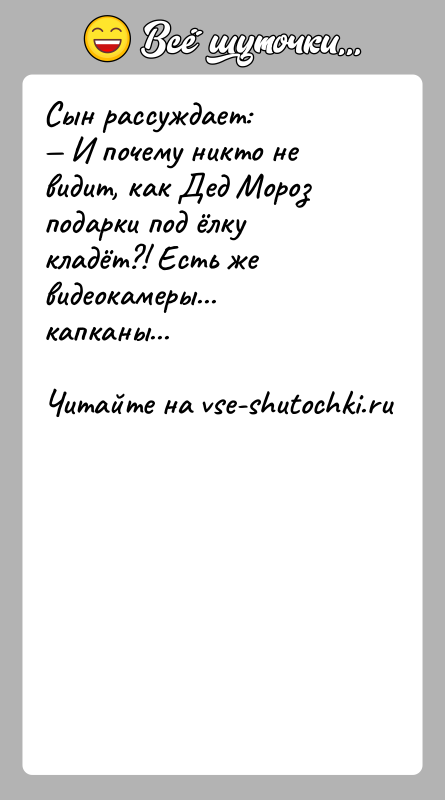 Всё шуточки...
Сын рассуждает:
– И почему никто не
видит, как Дед Мороз
подарки под ёлку
кладёт?! Есть же
видеокамеры...
капканы...
Читайте на vse-shutochki.ru